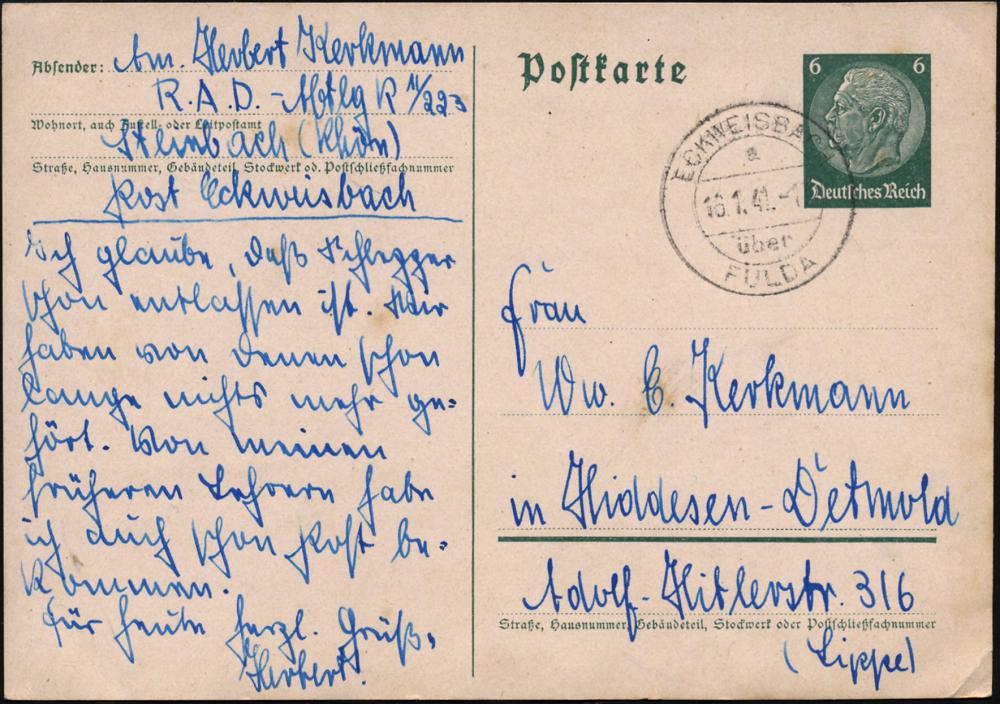 Absender: Am. Herbert Kerkmann
R.A.D.-Abtlg K 11/223
Wohnort, auch Zustell- oder Leitpostamt
Steinbach (Rhön)
Straße, Hausnummer, Gebäudeteil, Stockwerk od. Postschließfachnummer
Post Eckweisbach
Ich glaube, daß Schlegger
schon entlassen ist. Wir
haben von denen schon
lange nichts mehr ge-
hört. Von meinen
früheren Lehrern habe
ich auch schon Post be-
kommen.
Für heute herzl. Grüß.
Herbert.
Postkarte
6 6
Deutsches Reich
ECKWEISBACH
a
16.1.41.-1
über
FULDA
Frau
Ww. E. Kerkmann
in Hiddesen-Detmold
Adolf-Hitlerstr. 316
Straße, Hausnummer, Gebäudeteil, Stockwerk oder Postschließfachnummer
(Lippe)